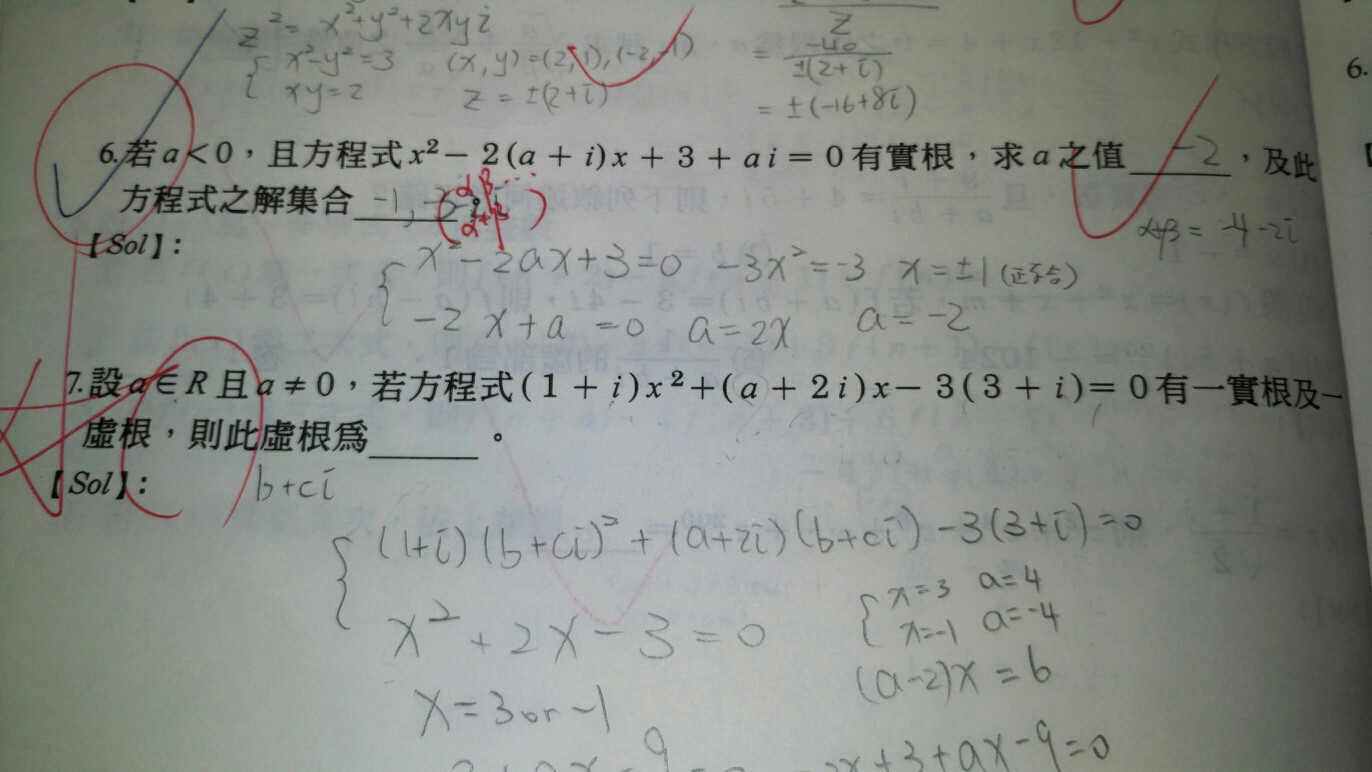 z² = x²+y²+2xyi
{ x²-y²=3 (x,y)=(2,1),(-2,-1)
xy=2 z=±(2+i)
z
= -40
±(2+i)
= ±(-16+8i)
6.
6.若a<0,且方程式x²-2(a+i)x+3+ai=0有實根,求a之值 -2 ,及此
方程式之解集合 -1,
αβ...
α+β
α+β = -4-2i
【Sol】:
{ x²-2ax+3=0 -3x²=-3 x=±1(正不合)
-2x+a=0 a=2x a=-2
7.設a∈R且a≠0,若方程式(1+i)x²+(a+2i)x-3(3+i)=0有一實根及一
虛根,則此虛根爲______。
【Sol】: b+ci
{ (1+i)(b+ci)²+(a+2i)(b+ci)-3(3+i)=0
x²+2x-3=0
{ x=3 a=4
x=-1 a=-4
(a-2)x=6
x=3 or -1
-2x+3+ax-9=0